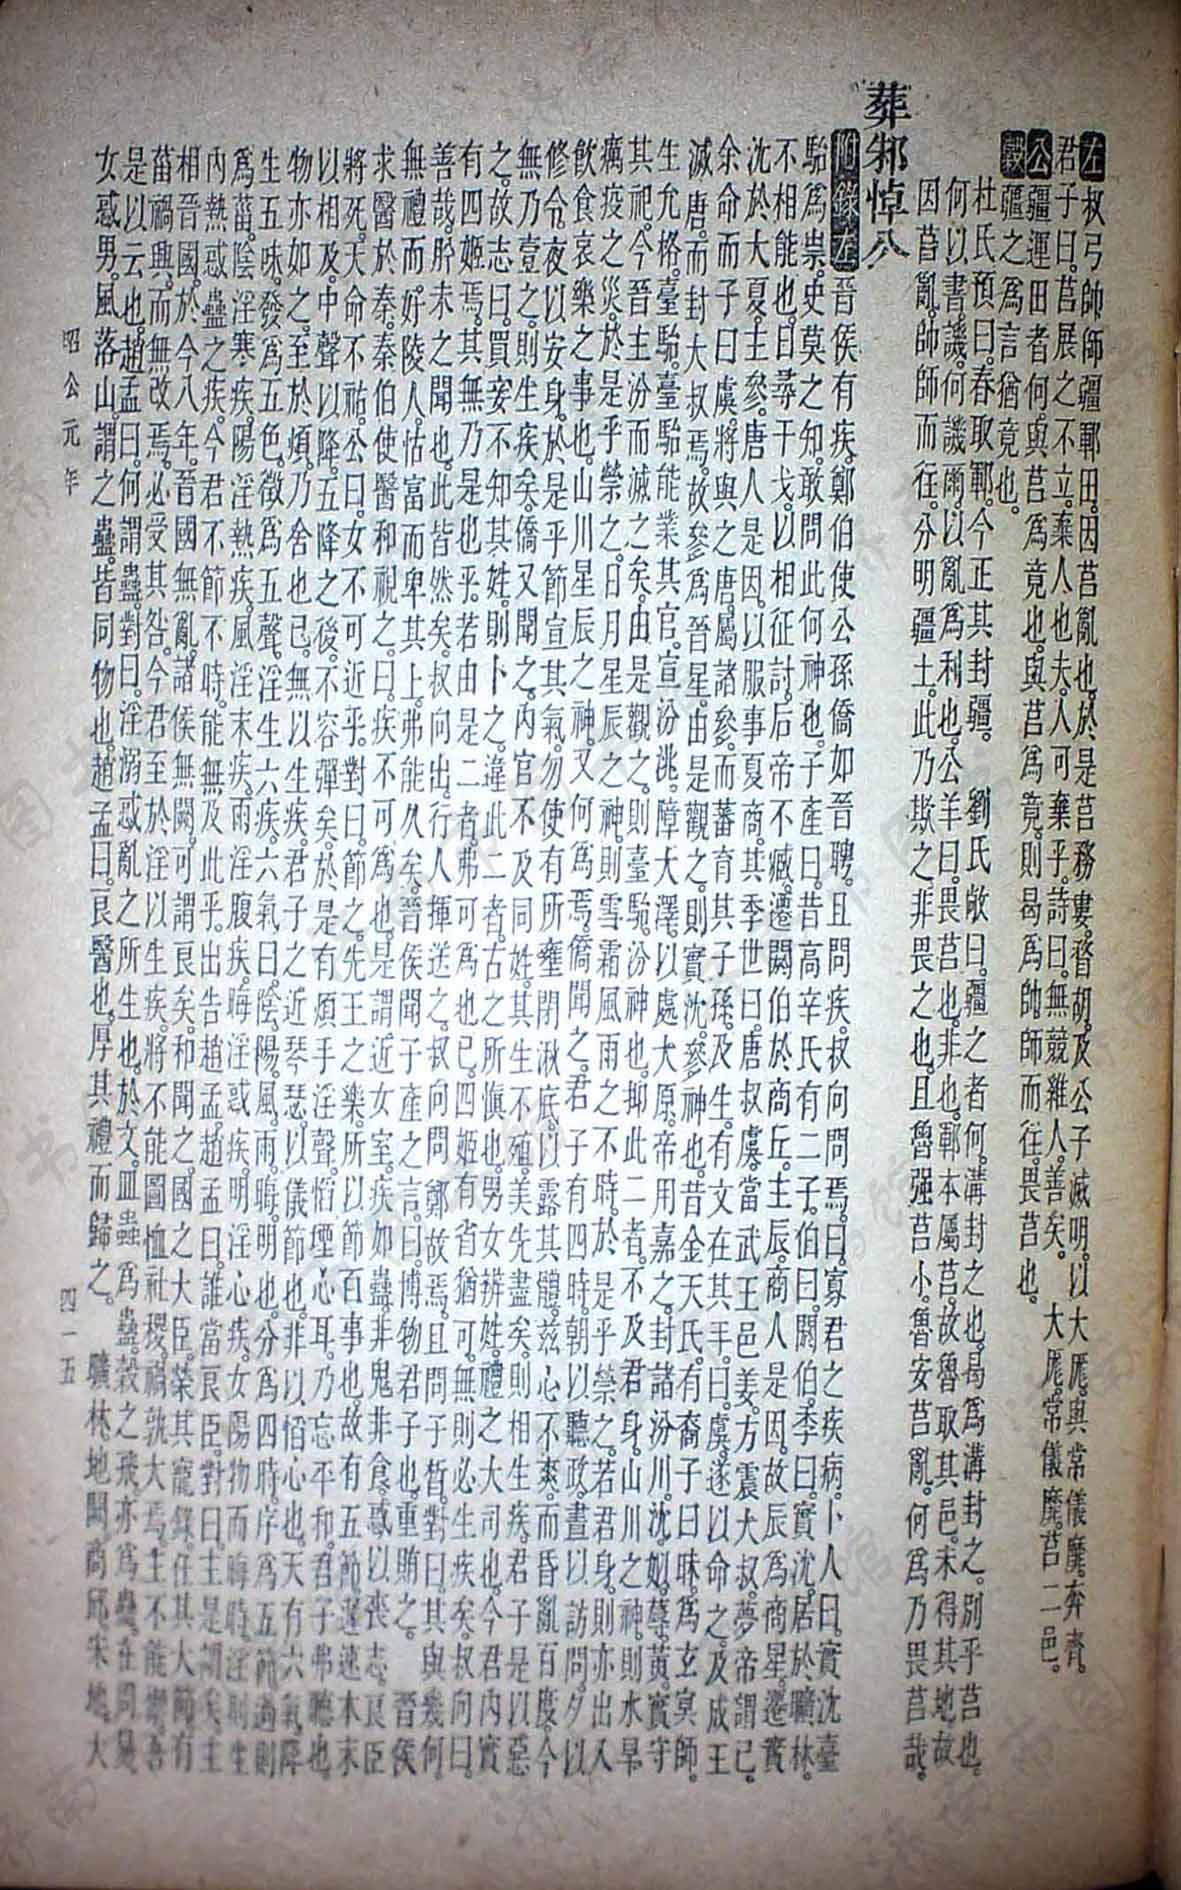 左叔弓帥師疆鄆田。因莒亂也。於是莒務婁。瞀胡。及公子滅明。以大厖。與常儀靡。奔齊。
君子曰。莒展之不立。棄人也夫。人可棄乎。詩曰。無競維人。善矣。　大厖。常儀靡。莒二邑。
公疆運田者何。與莒爲竟也。與莒爲竟。則曷爲帥師而往。畏莒也。
穀疆之爲言猶竟也。
杜氏預曰。春取鄆。今正其封疆。　劉氏敞曰。疆之者何。溝封之也。曷爲溝封之。別乎莒也。
何以書。譏。何譏爾。以亂爲利也。公羊曰。畏莒也。非也。鄆本屬莒。故魯取其邑。未得其地。故
因莒亂。帥師而往。分明疆土。此乃欺之。非畏之也。且魯强莒小。魯安莒亂。何爲乃畏莒哉。
葬邾悼公
附錄左晉侯有疾。鄭伯使公孫僑如晉聘。且問疾。叔向問焉。曰。寡君之疾病。卜人曰。實沈臺
駘爲祟。史莫之知。敢問此何神也。子產曰。昔高辛氏有二子。伯曰閼伯。季曰實沈。居於曠林。
不相能也。日尋干戈。以相征討。后帝不臧。遷閼伯於商丘。主辰。商人是因。故辰爲商星。遷實
沈於大夏。主參。唐人是因。以服事夏商。其季世曰唐叔虞。當武王邑姜。方震大叔。夢帝謂己。
余命而子曰虞。將與之唐。屬諸參。而蕃育其子孫。及生。有文在其手。曰虞。遂以命之。及成王
滅唐。而封大叔焉。故參爲晉星。由是觀之。則實沈。參神也。昔金天氏。有裔子曰昧。爲玄冥師。
生允格。臺駘。臺駘能業其官。宣汾洮。障大澤。以處大原。帝用嘉之。封諸汾川。沈。姒。蓐。黃。實守
其祀。今晉主汾而滅之矣。由是觀之。則臺駘。汾神也。抑此二者。不及君身。山川之神。則水旱
癘疫之災。於是乎禜之。日月星辰之神。則雪霜風雨之不時。於是乎禜之。若君身。則亦出入
飲食哀樂之事也。山川星辰之神。又何爲焉。僑聞之。君子有四時。朝以聽政。晝以訪問。夕以
修令。夜以安身。於是乎節宣其氣。勿使有所壅閉湫底。以露其體。茲心不爽。而昏亂百度。今
無乃壹之。則生疾矣。僑又聞之。內官不及同姓。其生不殖。美先盡矣。則相生疾。君子是以惡
之。故志曰。買妾不知其姓。則卜之。違此二者。古之所慎也。男女辨姓。禮之大司也。今君內實
有四姬焉。其無乃是也乎。若由是二者。弗可爲也已。四姬有省猶可。無則必生疾矣。叔向曰。
善哉。肸未之聞也。此皆然矣。叔向出。行人揮送之。叔向問鄭故焉。且問子皙。對曰。其與幾何。
無禮而好陵人。怙富而卑其上。弗能久矣。晉侯聞子產之言。曰。博物君子也。重賄之。　晉侯
求醫於秦。秦伯使醫和視之。曰。疾不可爲也。是謂近女室。疾如蠱。非鬼非食。惑以喪志。良臣
將死。天命不祐。公曰。女不可近乎。對曰。節之。先王之樂。所以節百事也。故有五節。遲速本末
以相及。中聲以降。五降之後。不容彈矣。於是有煩手淫聲。慆堙心耳。乃忘平和。君子弗聽也。
物亦如之。至於煩。乃舍也已。無以生疾。君子之近琴瑟。以儀節也。非以慆心也。天有六氣。降
生五味。發爲五色。徵爲五聲。淫生六疾。六氣曰。陰。陽。風。雨。晦。明也。分爲四時。序爲五節。過則
爲菑。陰淫寒疾。陽淫熱疾。風淫末疾。雨淫腹疾。晦淫惑疾。明淫心疾。女陽物而晦時。淫則生
內熱惑蠱之疾。今君不節不時。能無及此乎。出告趙孟。趙孟曰。誰當良臣。對曰。主是謂矣。主
相晉國。於今八年。晉國無亂。諸侯無闕。可謂良矣。和聞之。國之大臣。榮其寵祿。任其大節。有
菑禍興。而無改焉。必受其咎。今君至於淫以生疾。將不能圖恤社稷。禍孰大焉。主不能禦。吾
是以云也。趙孟曰。何謂蠱。對曰。淫溺惑亂之所生也。於文。皿蟲爲蠱。穀之飛。亦爲蠱。在周易。
女惑男。風落山。謂之蠱。皆同物也。趙孟曰。良醫也。厚其禮而歸之。　曠林。地闕。商邱。宋地。大
昭公元年　四一五